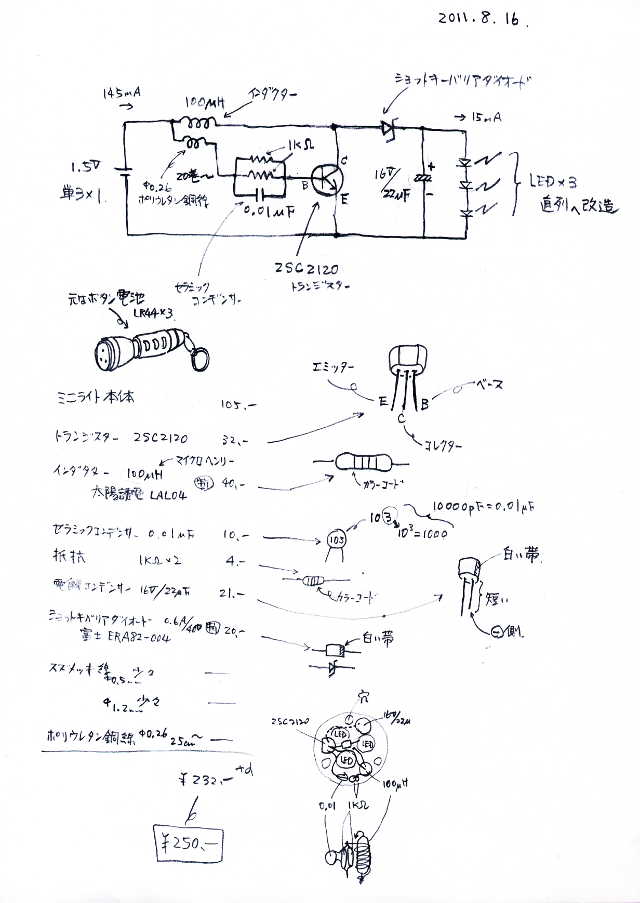 2011.8.16.
ショットキーバリアダイオード
145mA
100μH
インダクター
15mA
1KΩ
1.5V
単3×1.
φ0.26
ポリウレタン銅線
20巻〜
0.01μF
B
C
E
16V/22μF
+
-
LED×3
直列へ改造
2SC2120
トランジスター
セラミック
コンデンサー
元はボタン電池
LR44×3
ミニライト本体 105.-
エミッター
ベース
E
C
B
コレクター
トランジスター 2SC2120 32.-
マイクロヘンリー
インダクター 100μH 40.-
太陽誘電 LAL04
カラーコード
セラミックコンデンサー 0.01μF 10.-
103
103
10000pF=0.01μF
10³=1000
抵抗 1KΩ×2 4.-
カラーコード
白い帯
短い
⊖側
電解コンデンサー 16V/22μF 21.-
ショットキバリアダイオード 0.6A/40V 20.-
富士 ERA82-004
白い帯
スズメッキ線
φ0.5mm 少々
φ1.2mm 少々
ポリウレタン銅線 φ0.26 25cm〜
穴
2SC2120
16V/22μ
LED
LED
LED
100μH
0.01
1KΩ
¥232.-+α
¥250.-